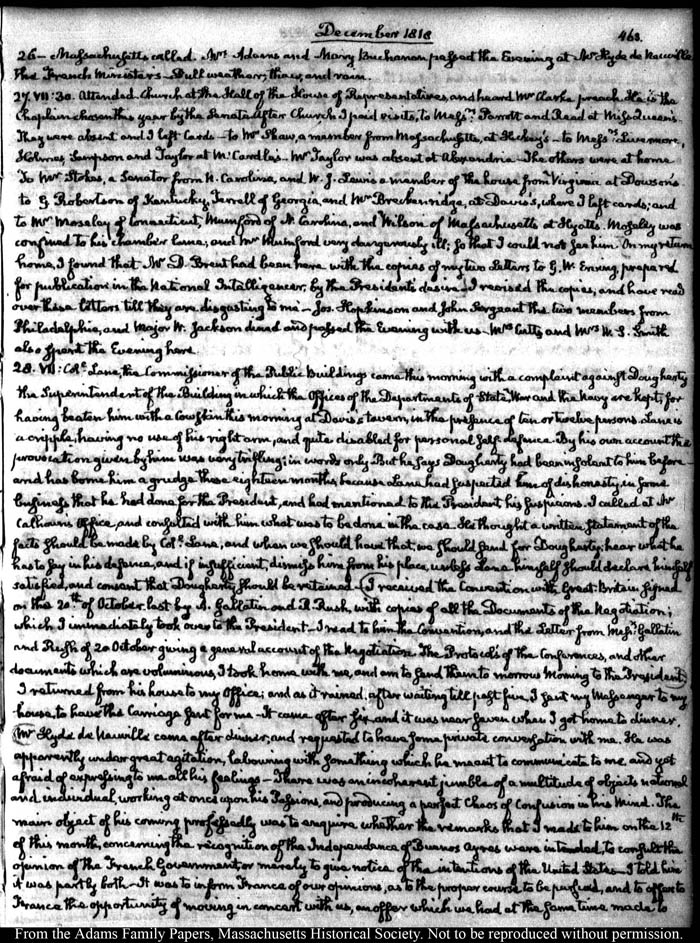 December 1818
463.
26 – Massachusetts called. Mrs Adams and Mary Buchanan passed the Evening at Mr Hyde de Neuville
the French Ministers – Dull weather; thaw, and rain.
27. VII:30. Attended Church at the Hall of the House of Representatives, and heard Mr Clarke preach. He is the
Chaplain chosen this year by the Senate. After Church, I paid visits, to Messrs Parrott and Read at Miss Queen's.
They were absent and I left Cards – to Mr Shaw, a member from Massachusetts, at – to Messrs Livermore,
Holmes, Sampson and Taylor at McCardle's. Mr Taylor was absent at Alexandria – The others were at home
To Mr Stokes, a Senator from N. Carolina, and W. J. Lewis a member of the house from Virginia at Dowson's
to G Robertson of Kentucky, Terrell of Georgia, and Mr Breckenridge, at Davis's, where I left cards; and
to Mr Moseley of Connecticut, Mumford of N. Carolina, and Wilson of Massachusetts at Hyatts. Moseley was
confined to his chamber lame; and Mr Mumford very dangerously ill; so that I could not see him. On my return
home, I found that Mr D. Brent had been here with the copies of my two Letters to G. W. Erving, prepared
for publication in the National Intelligencer, by the President's desire. I revised the copies, and have read
over these letters till they are disgusting to me – Jos. Hopkinson and John Sergeant the two members from
Philadelphia, and Major W. Jackson dined and passed the Evening with us – Mrs Cutts and Mrs W. S. Smith
also spent the Evening here.
28. VII: Coll. Lane, the Commissioner of the Public Buildings came this morning with a complaint against Dougherty
the Superintendent of the Building in which the Offices of the Departments of State, War and the Navy are kept; for
having beaten him with a Cowskin this morning at Davis's tavern, in the presence of ten or twelve persons. Lane is
a cripple, having no use of his right arm, and quite disabled for personal self defence. By his own account the
provocation given by him was very trifling; in words only. But he says Dougherty had been insolent to him before
and has borne him a grudge these eighteen months, because Lane had suspected him of dishonesty, in some
business that he had done for the President, and had mentioned to the President his suspicions. I called at Mr
Calhoun's Office, and consulted with him what was to be done in the case. He thought a written statement of the
facts should be made by Coll. Lane, and when we should have that, we should send for Dougherty; hear what he
has to say in his defence, and if insufficient, dismiss him from his place, unless Lane himself should declare himself
satisfied, and consent that Dougherty should be retained. (I received the Convention with Great-Britain signed
on the 20th of October last by A. Gallatin and R. Rush, with copies of all the Documents of the Negotiation;
which I immediately took over to the President – I read to him the Convention, and the Letter from Messrs Gallatin
and Rush of 20 October giving a general account of the Negotiation. The Protocols of the Conferences, and other
documents which are voluminous, I took home with me, and am to send them to-morrow Morning to the President)
I returned from his house to my Office; and as it rained, after waiting till past five, I sent my Messenger to my
house, to have the Carriage sent for me – It came after six, and it was near seven when I got home to dinner.
(Mr Hyde de Neuville came after dinner, and requested to have some private conversation with me. He was
apparently under great agitation, labouring with something which he meant to communicate to me and yet
afraid of expressing to me all his feelings – There was an incoherent jumble of a multitude of objects national
and individual, working at once upon his Passions, and producing a perfect Chaos of Confusion in his Mind. The
main object of his coming professedly was to enquire whether the remarks that I made to him on the 12th
of this month, concerning the recognition of the Independence of Buenos Ayres were intended, to consult the
opinion of the French Government or merely to give notice of the intentions of the United States – I told him
it was partly both – It was to inform France of our opinions, as to the proper course to be pursued, and to offer to
France the opportunity of moving in concert with us, an offer which we had at the same time made to
From the Adams Family Papers, Massachusetts Historical Society. Not to be reproduced without permission.